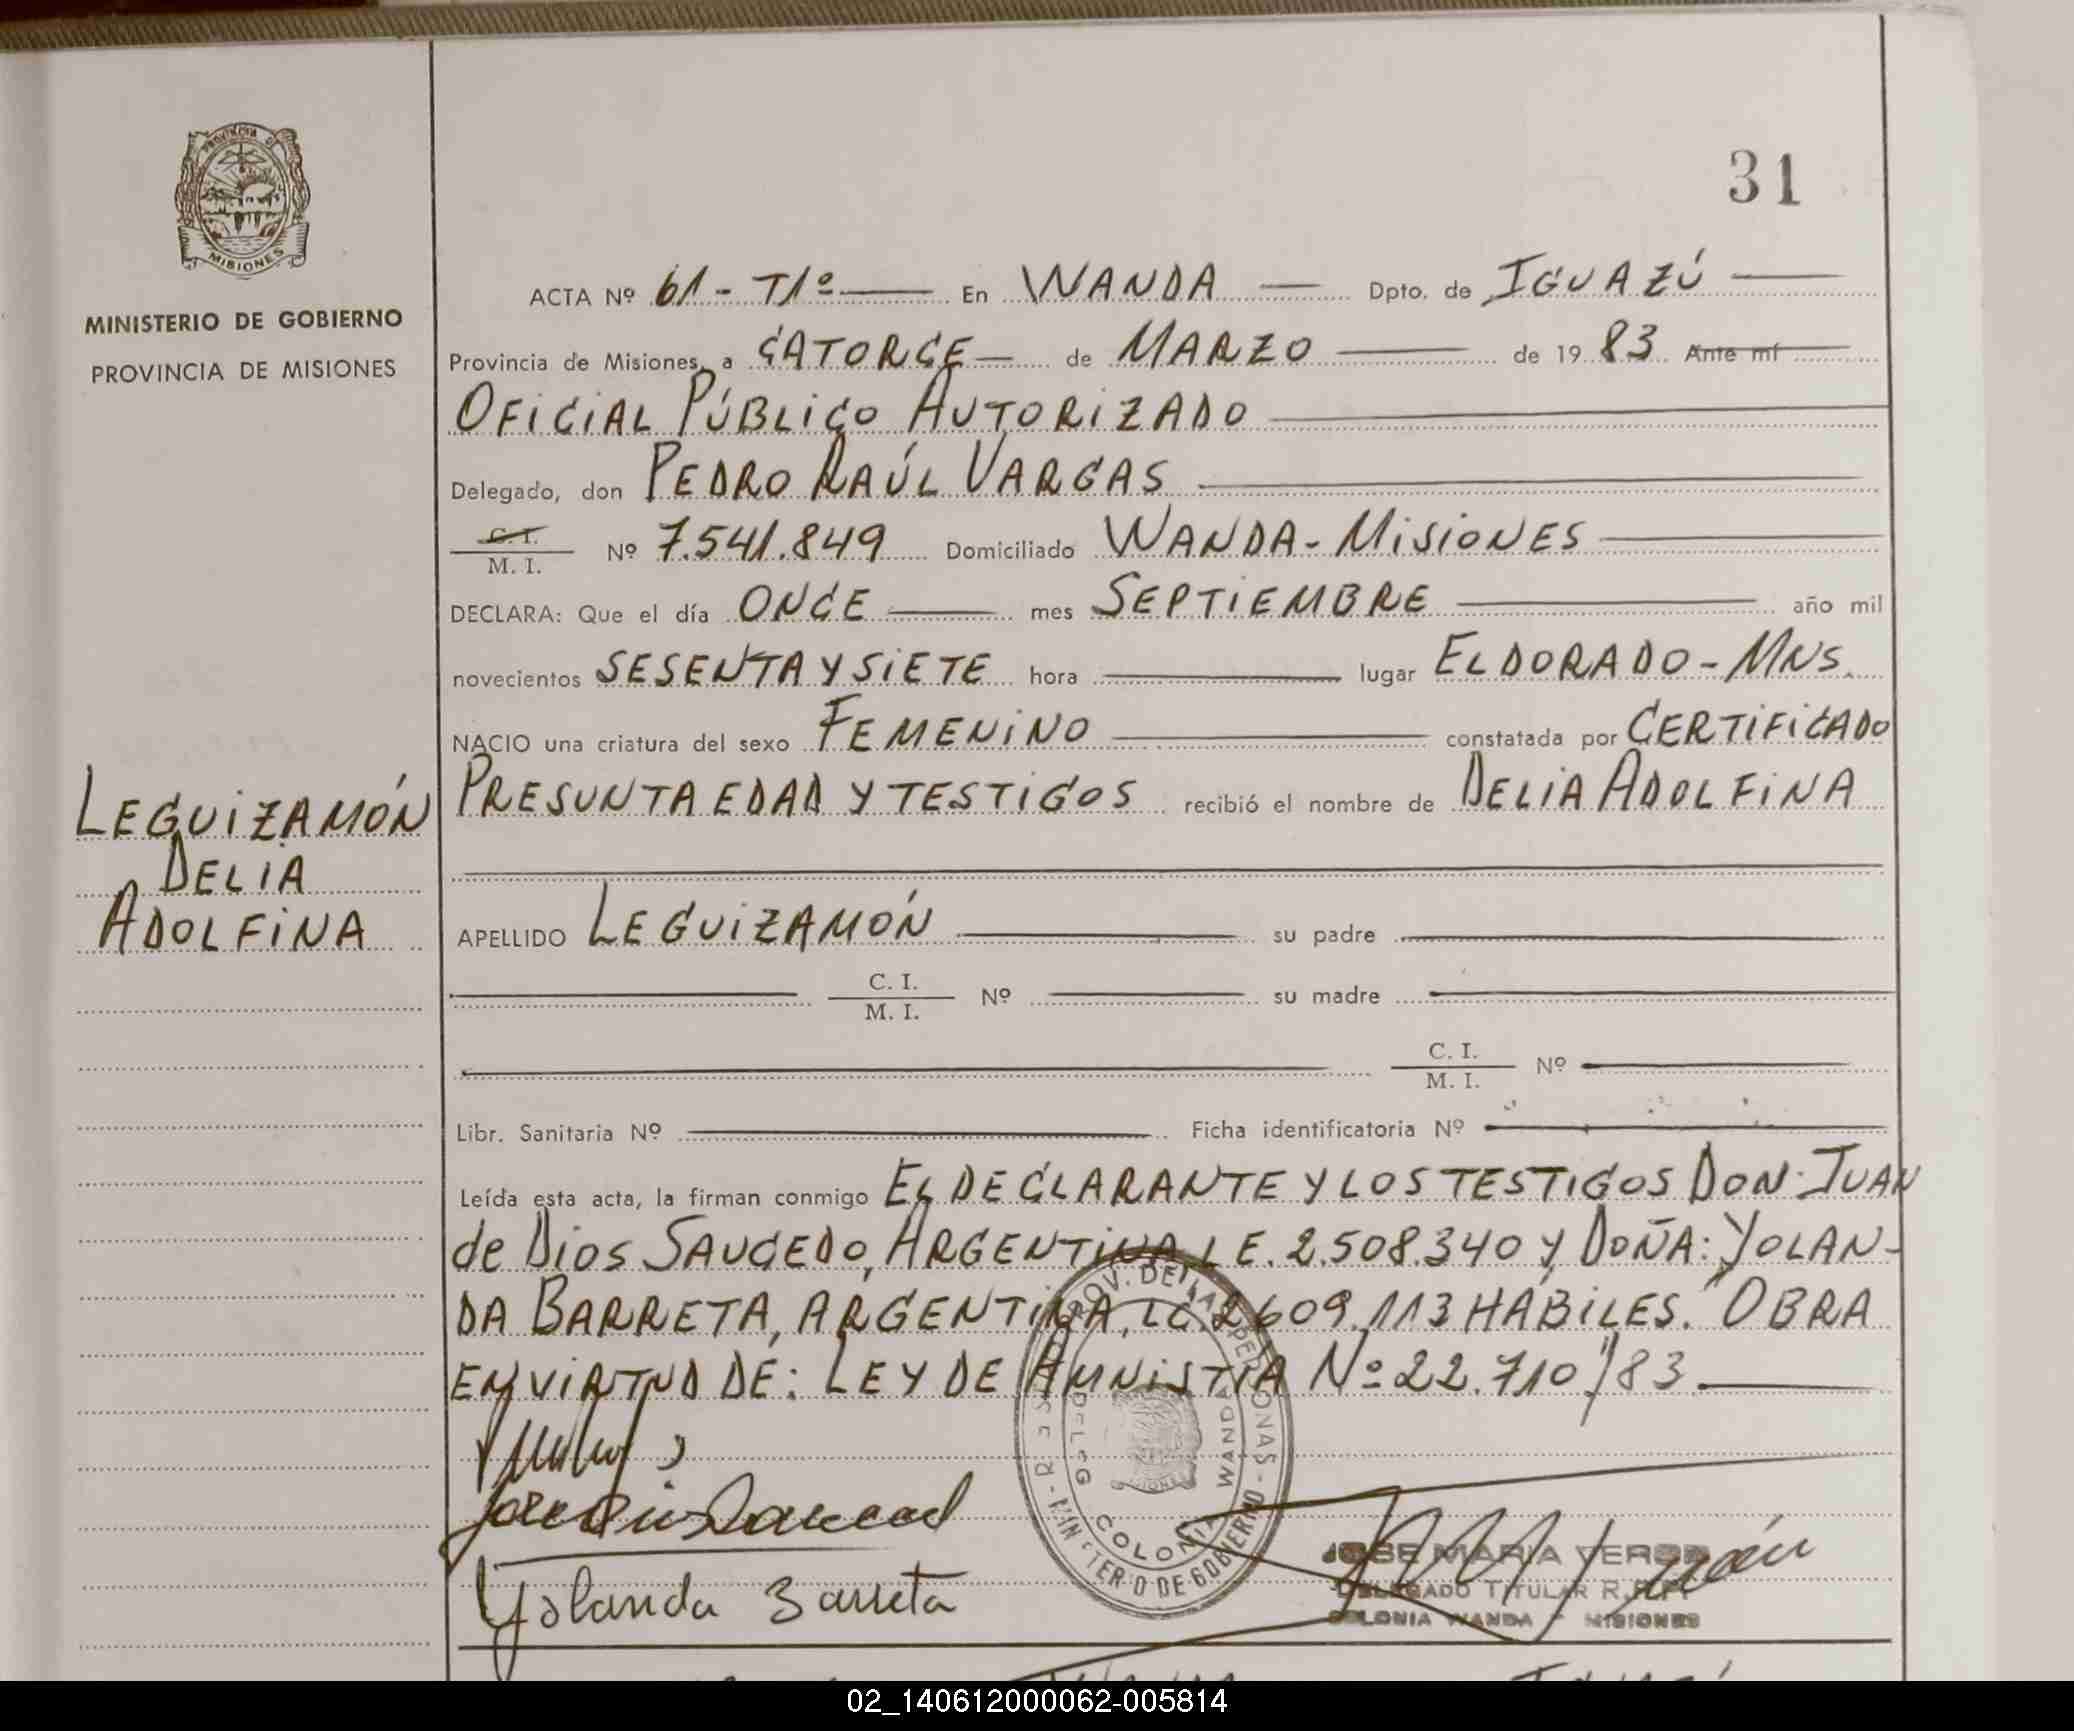 31
MINISTERIO DE GOBIERNO
PROVINCIA DE MISIONES
MISIONES
ACTA Nº 61 - T1º En WANDA Dpto. de IGUAZÚ
Provincia de Misiones, a CATORCE de MARZO de 19 83 Ante mí
OFICIAL PÚBLICO AUTORIZADO
Delegado, don PEDRO RAÚL VARGAS
C. I.
M. I. Nº 7.541.849 Domiciliado WANDA - MISIONES
DECLARA: Que el día ONCE mes SEPTIEMBRE año mil
novecientos SESENTA Y SIETE hora lugar ELDORADO - MNS.
NACIO una criatura del sexo FEMENINO constatada por CERTIFICADO
PRESUNTA EDAD Y TESTIGOS recibió el nombre de DELIA ADOLFINA
LEGUIZAMÓN
DELIA
ADOLFINA
APELLIDO LEGUIZAMÓN su padre
C. I.
M. I. Nº su madre
C. I.
M. I. Nº
Libr. Sanitaria Nº Ficha identificatoria Nº
Leída esta acta, la firman conmigo EL DECLARANTE Y LOS TESTIGOS DON: JUAN
de DIOS SAUCEDO, ARGENTINA LE. 2.508.340 Y DOÑA: YOLAN-
DA BARRETA, ARGENTINA, LC. 2609.113 HÁBILES. "OBRA
EN VIRTUD DE: LEY DE AMNISTÍA Nº 22.710"/83
PROV. DE LAS PERSONAS - MINISTERIO DE GOBIERNO
DELEG COLONIA WANDA
Yolanda Barreta
JOSE MARIA
DELEGADO TITULAR R.P.P.
COLONIA WANDA - MISIONES
02_140612000062-005814